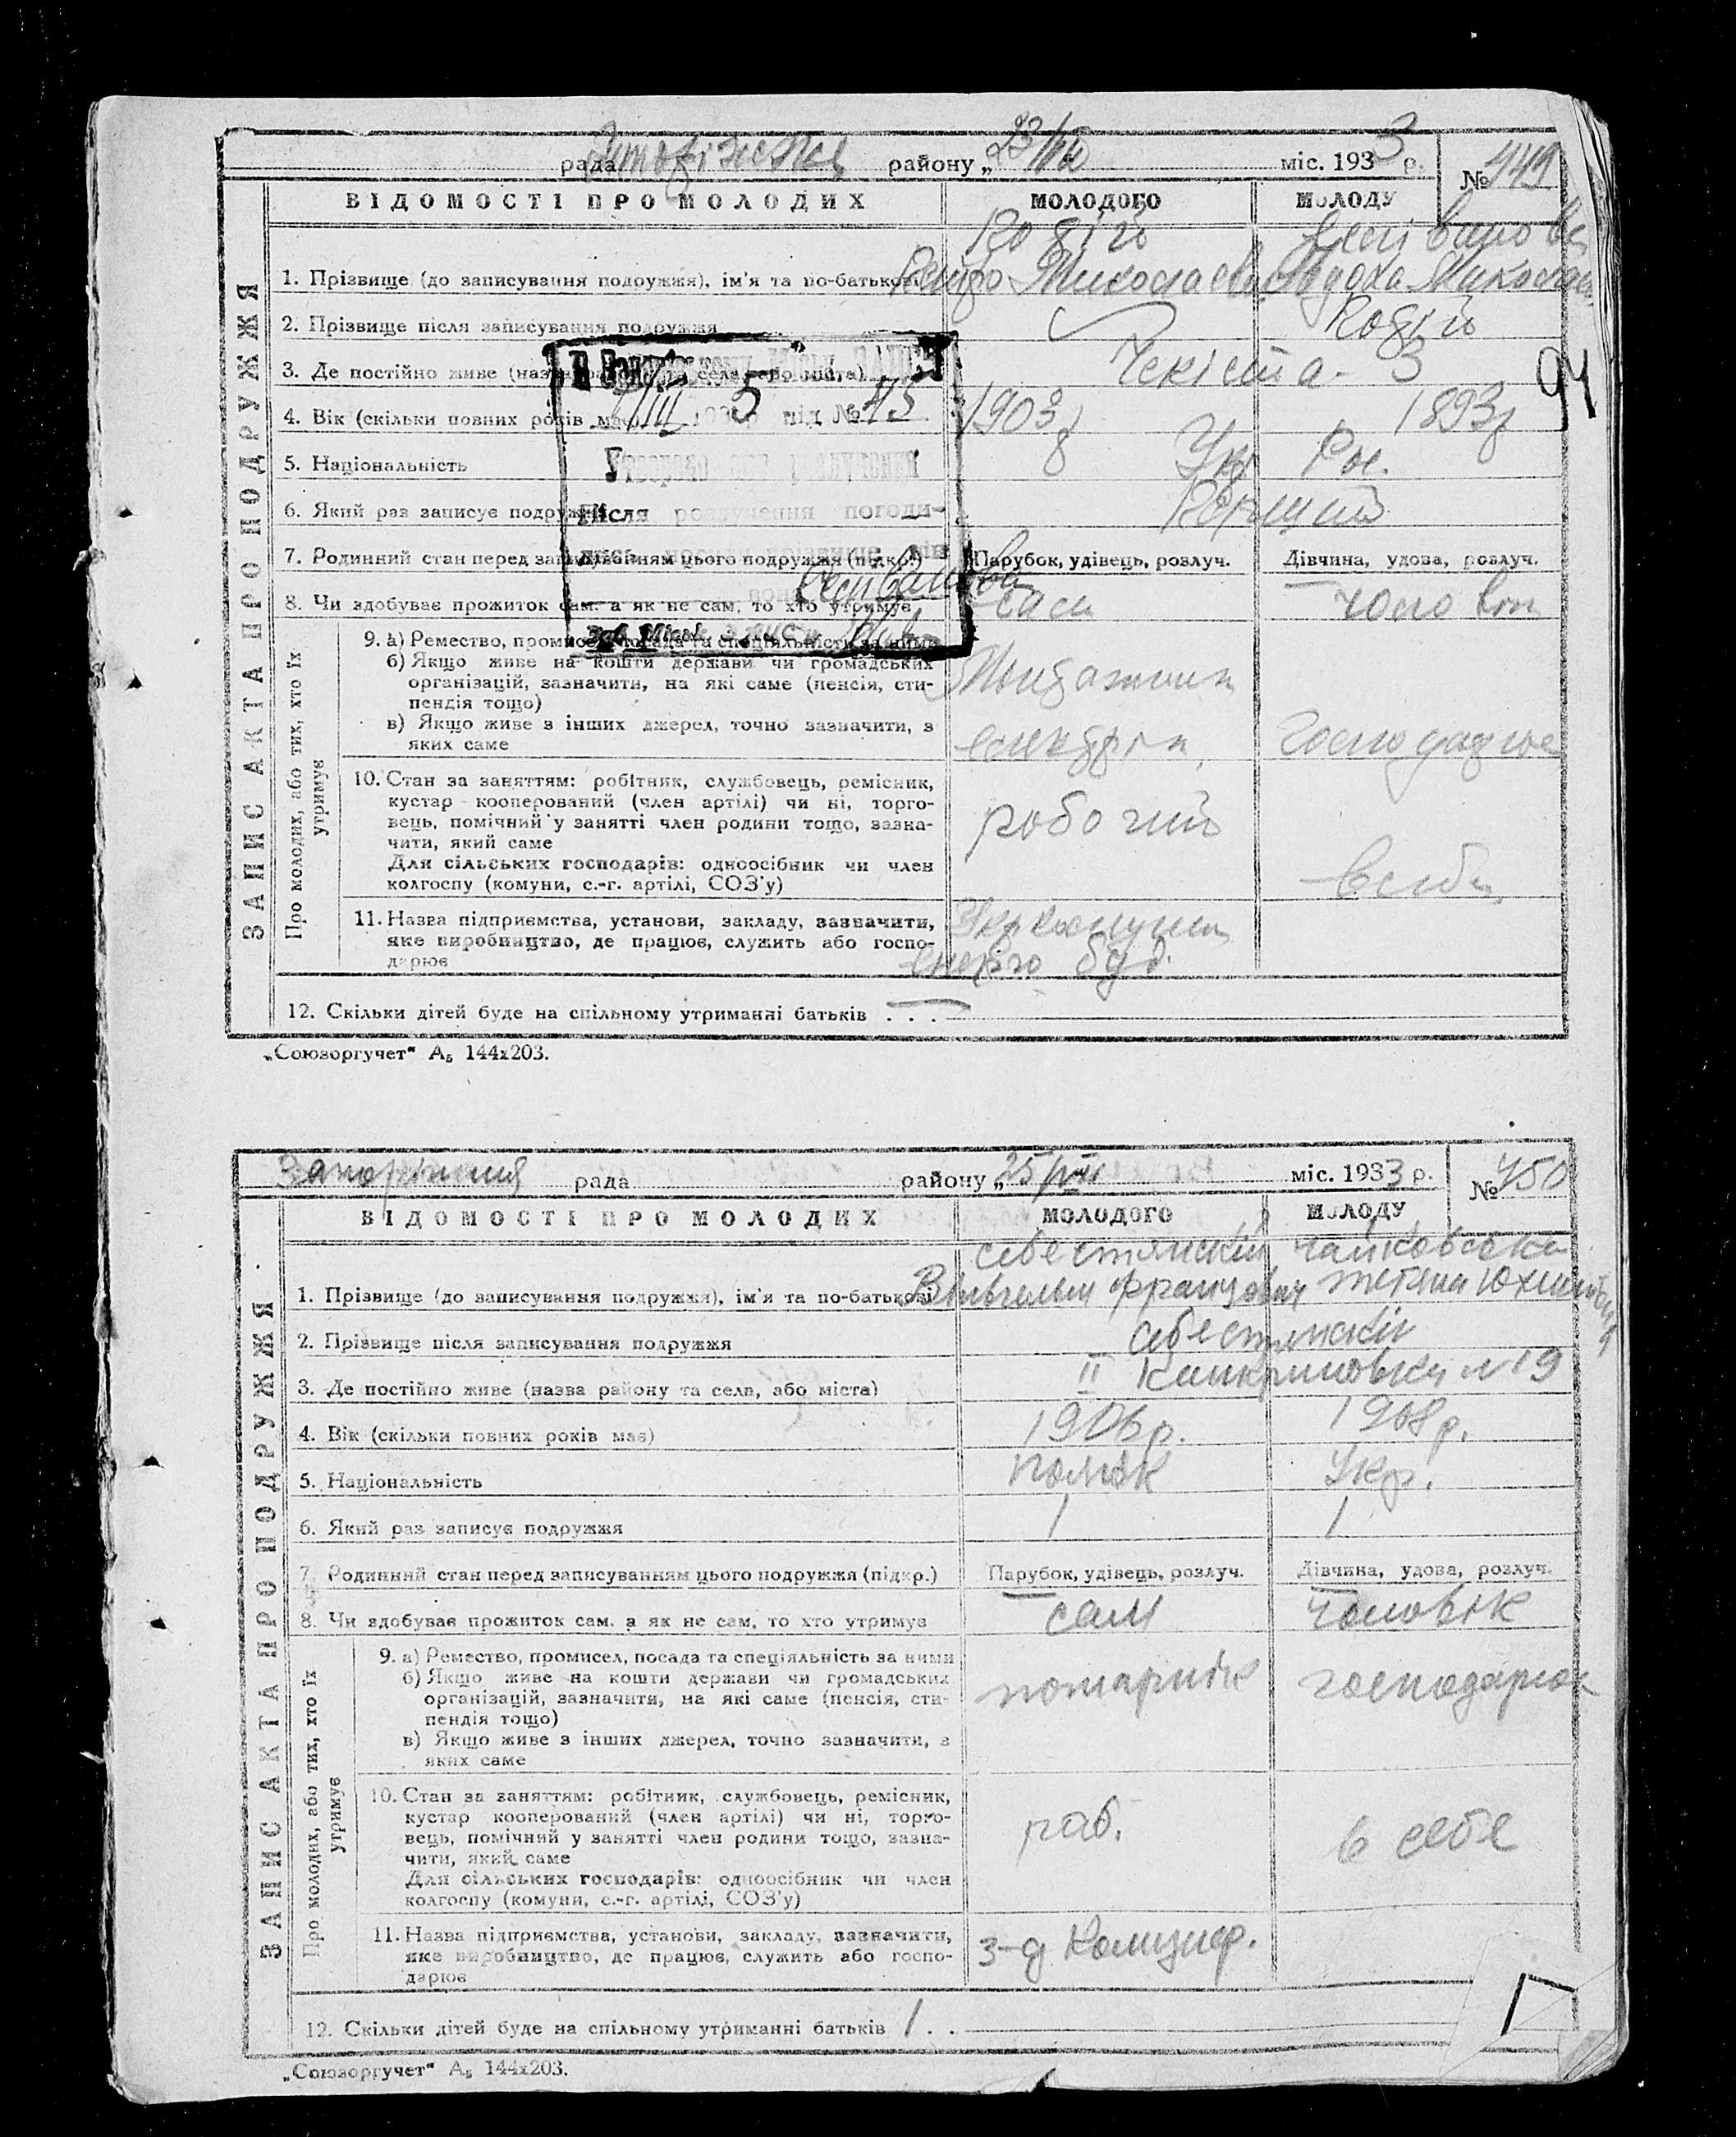 рада району „23/VII міс. 1933 р. № 449
ВІДОМОСТІ ПРО МОЛОДИХ МОЛОДОГО МОЛОДУ
ЗАПИС АКТА ПРО ПОДРУЖЖЯ
Кобій
1. Прізвище (до записування подружжя), ім'я та по-батькові Миколаєв Явдоха Миколаєв
2. Прізвище після записування подружжя Кобій
3. Де постійно живе (назва району та села, або міста) Чекіста - 3
94
4. Вік (скільки повних років має) 1903 р 1893 р
5. Національність Укр Рос.
6. Який раз записує подружжя Перший
7. Родинний стан перед записуванням цього подружжя (підкр.) Парубок, удівець, розлуч. Дівчина, удова, розлуч.
8. Чи здобуває прожиток сам, а як не сам, то хто утримує сам чоловік
Про молодих, або тих, хто їх утримує
9. а) Ремество, промисел, посада та спеціяльність за ними
б) Якщо живе на кошти держави чи громадських
організацій, зазначити, на які саме (пенсія, сти-
пендія тощо)
в) Якщо живе з інших джерел, точно зазначити, з
яких саме
10. Стан за заняттям: робітник, службовець, ремісник,
кустар кооперований (член артілі) чи ні, торго-
вець, помічний у занятті член родини тощо, зазна-
чити, який саме робочий
Для сільських господарів: одноосібник чи член
колгоспу (комуни, с.-г. артілі, СОЗ'у) в себе
11. Назва підприємства, установи, закладу, зазначити,
яке виробництво, де працює, служить або госпо-
дарює
12. Скільки дітей буде на спільному утриманні батьків . . . —
5 під № 45
Після розлучення погоди-
„Союзоргучет“ А₅ 144х203.
Запоріжжя рада району „25/VII міс. 1933 р. № 450
ВІДОМОСТІ ПРО МОЛОДИХ МОЛОДОГО МОЛОДУ
ЗАПИС АКТА ПРО ПОДРУЖЖЯ
Себестянский Чайковська
1. Прізвище (до записування подружжя), ім'я та по-батькові Вільгельм Францович Тетяна Юхимівна
2. Прізвище після записування подружжя Себестянскій
3. Де постійно живе (назва району та села, або міста) II Канкриновки №19
4. Вік (скільки повних років має) 1906 р. 1908 р.
5. Національність поляк Укр.
6. Який раз записує подружжя 1 1
7. Родинний стан перед записуванням цього подружжя (підкр.) Парубок, удівець, розлуч. Дівчина, удова, розлуч.
8. Чи здобуває прожиток сам, а як не сам, то хто утримує сам чоловік
Про молодих, або тих, хто їх утримує
9. а) Ремество, промисел, посада та спеціяльність за ними
б) Якщо живе на кошти держави чи громадських
організацій, зазначити, на які саме (пенсія, сти- пожарнік господарює
пендія тощо)
в) Якщо живе з інших джерел, точно зазначити, з
яких саме
10. Стан за заняттям: робітник, службовець, ремісник,
кустар кооперований (член артілі) чи ні, торго-
вець, помічний у занятті член родини тощо, зазна- раб. в себе
чити, який саме
Для сільських господарів: одноосібник чи член
колгоспу (комуни, с.-г. артілі, СОЗ'у)
11. Назва підприємства, установи, закладу, зазначити,
яке виробництво, де працює, служить або госпо- з-д Комунар.
дарює
12. Скільки дітей буде на спільному утриманні батьків 1 . .
„Союзоргучет“ А₅ 144х203.